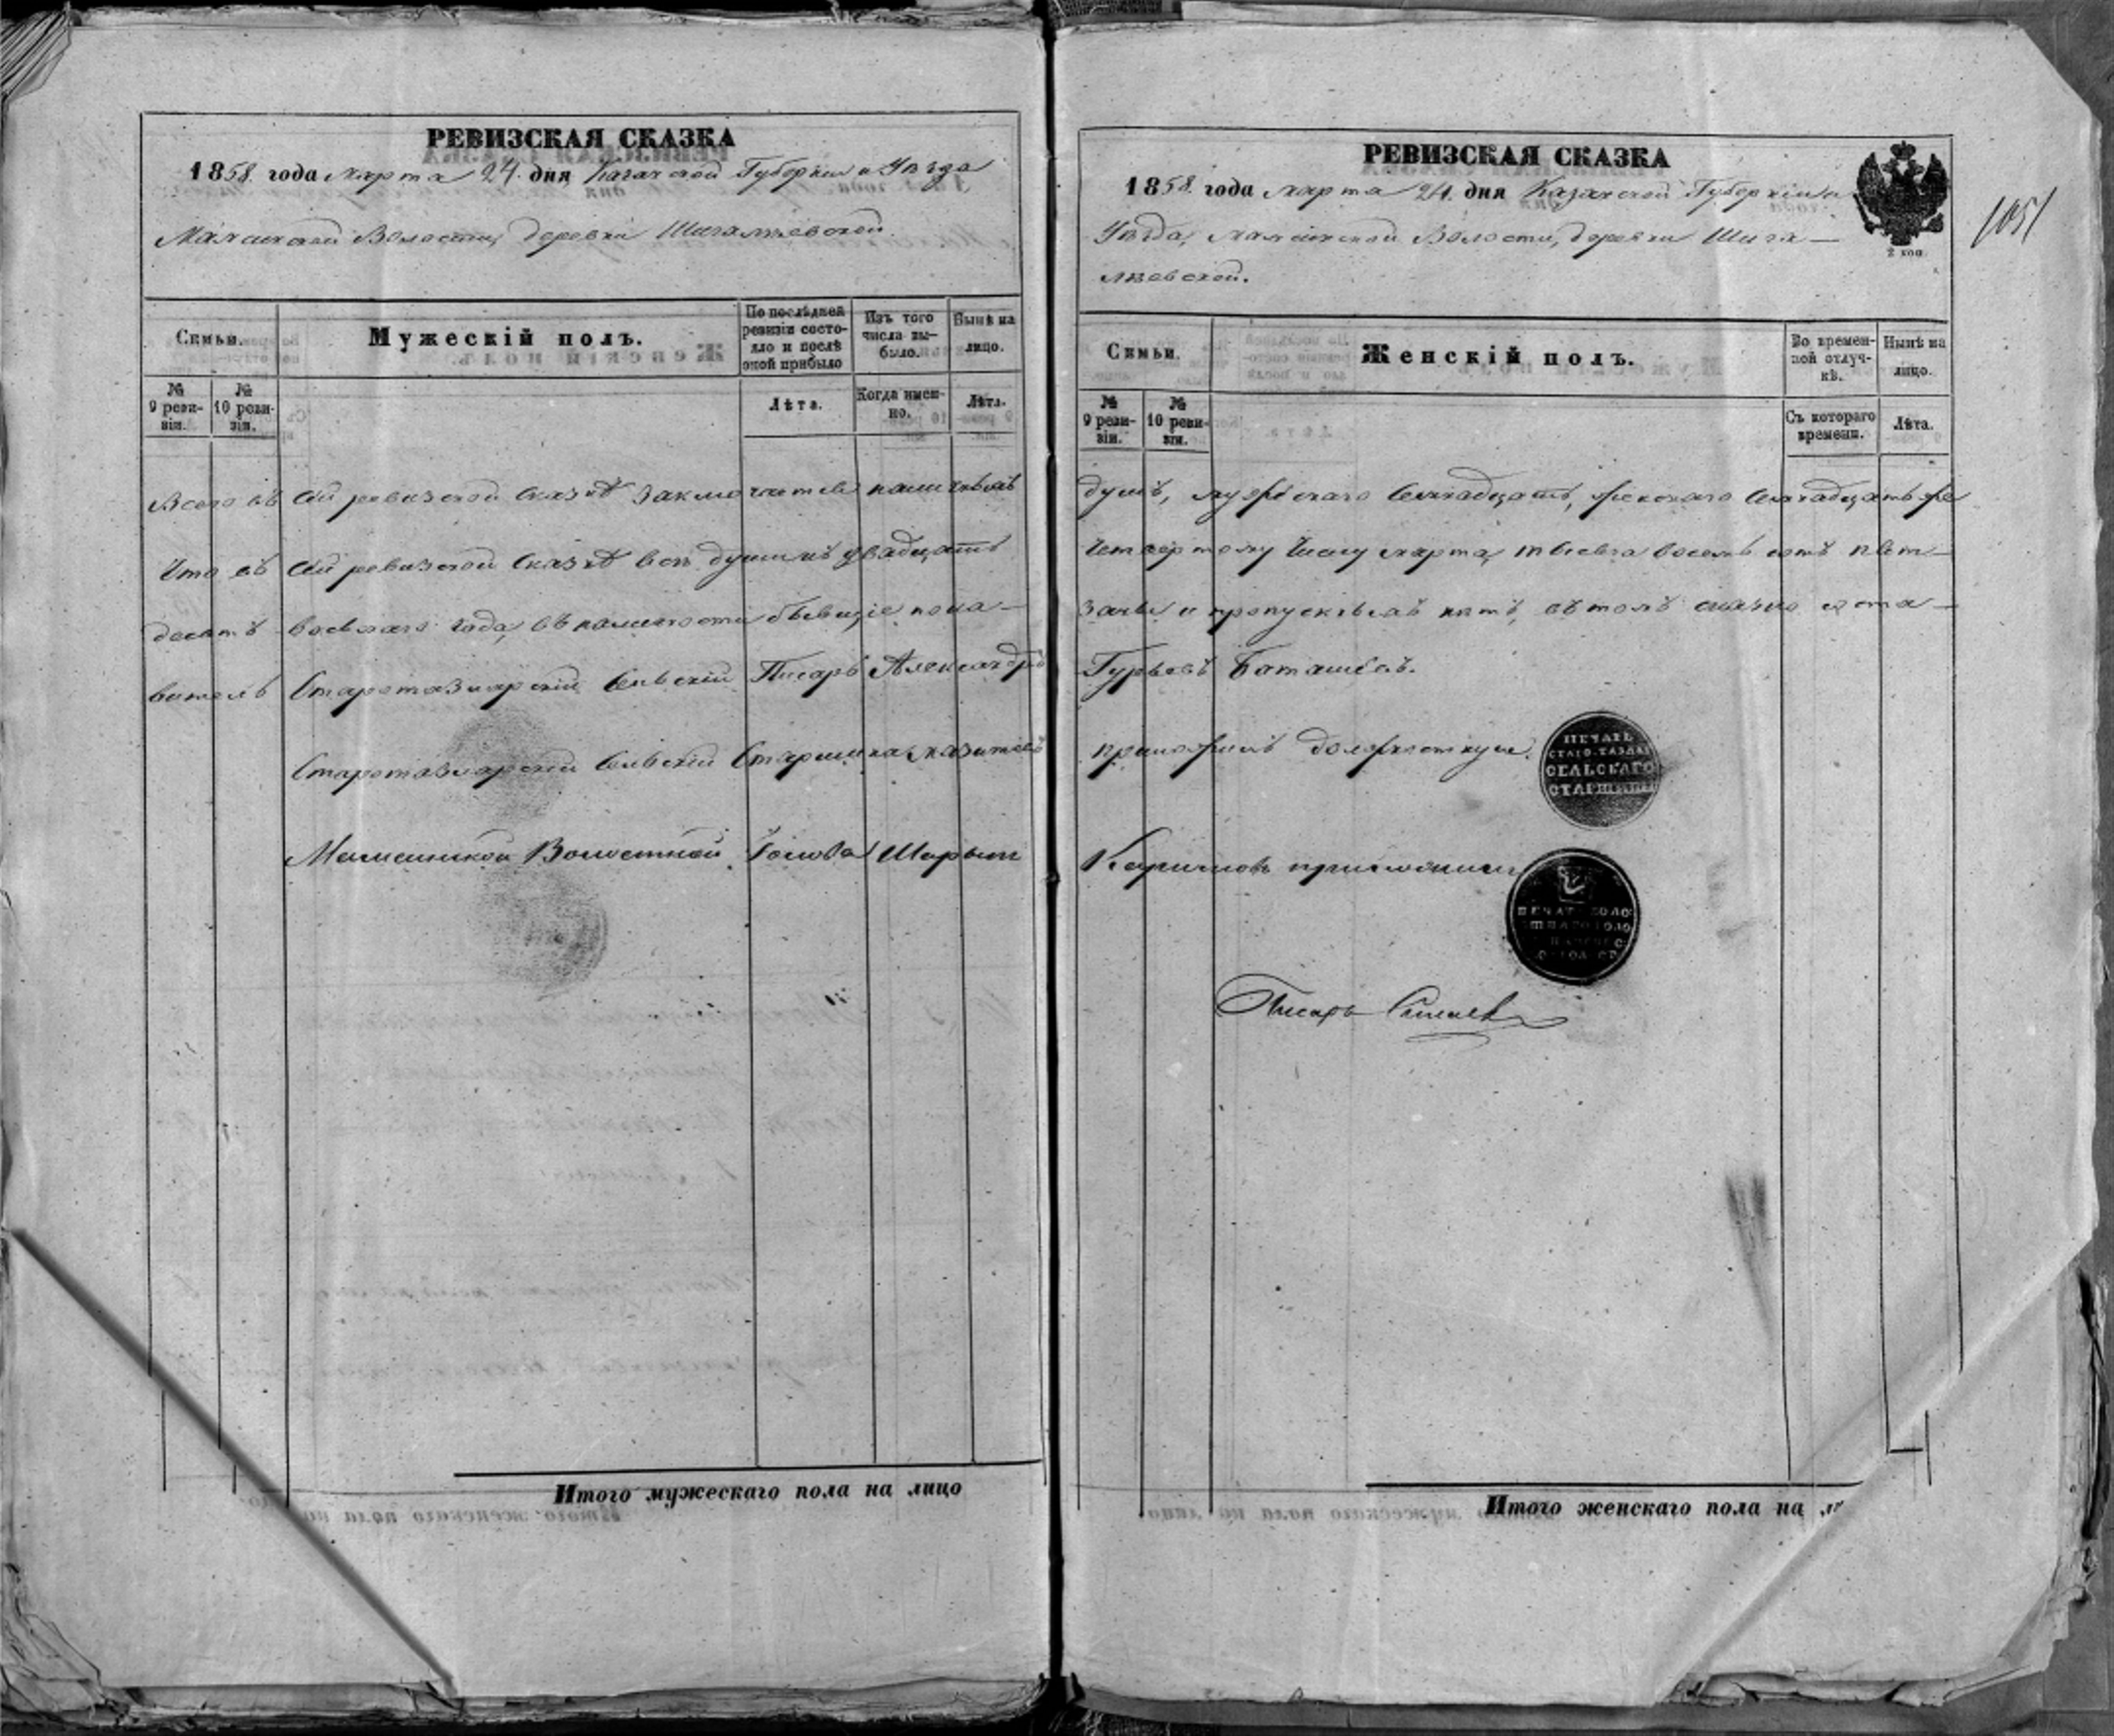 РЕВИЗСКАЯ СКАЗКА
1858. года марта 24. дня Казанской Губернии и Уѣзда
Мамсинской Волости, деревни Шигалѣевской.
Семьи.
Мужескій полъ.
По послѣдней ревизіи состояло и послѣ оной прибыло
Изъ того числа вы-было.
Нынѣ на лицо.
№ 9 реви-зіи.
№ 10 реви-зіи.
Лѣта.
Когда имен-но.
Лѣта.
Всего въ сей ревизской сказкѣ заключается наличныхъ
Что въ сей ревизской сказкѣ всѣ души къ двадцать
десятъ восьмаго года, въ наличности бывщіе пока-
ватель Старотазларскій сельскій Писарь Александръ
Старотазларскій сельскій Старшина
Волостной Голова Шарып
Итого мужескаго пола на лицо
РЕВИЗСКАЯ СКАЗКА
1858. года марта 24. дня Казанской Губерніи и
Уѣзда, Мамсинской Волости, деревни Шига-
лѣевской.
2 коп.
1051
Семьи.
Женскій полъ.
Во времен-ной отлуч-кѣ.
Нынѣ на лицо.
№ 9 реви-зіи.
№ 10 реви-зіи.
Съ котораго времени.
Лѣта.
душъ, мужескаго семнадцать, женскаго семнадцать же
четвертому числу марта, тысяча восемь сотъ пят-
заны и пропускныхъ нѣтъ, въ томъ соста-
Гурьевъ Баташевъ.
приложилъ должностную
ПЕЧАТЬ
СТАРО. ТАЗЛАР
СЕЛЬСКАГО
СТАРШИНЫ
Каримовъ приложилъ
Писарь
Итого женскаго пола на